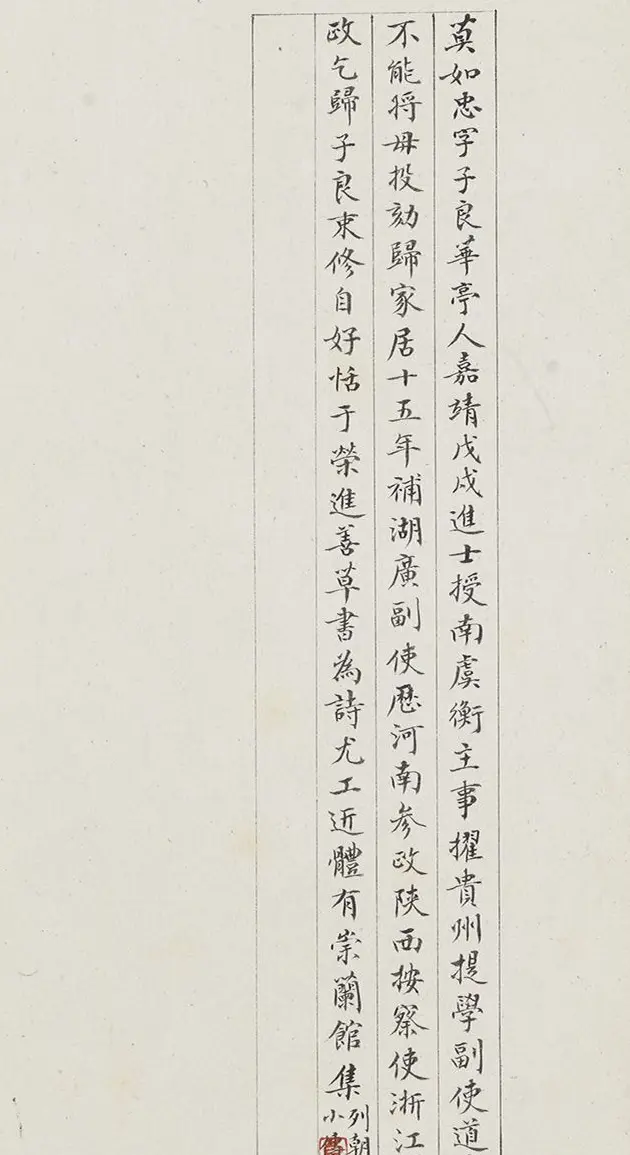 莫如忠字子良華亭人嘉靖戊戌進士授南虞衡主事擢貴州提學副使道
不能將母投劾歸家居十五年補湖廣副使歷河南参政陝西按察使浙江
政乞歸子良束修自好恬于榮進善草書為詩尤工近體有崇蘭館集
列朝
小